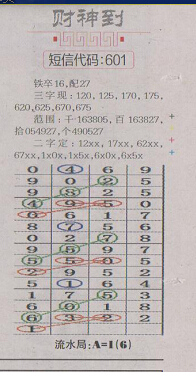 财神到
短信代码:601
铁卒16,配27
三字现:120,125,170,175,
620,625,670,675
范围:千163805,百163827,
拾054927,个490527
二字定:12xx,17xx,62xx,
67xx,1x0x,1x5x,6x0x,6x5x
0 4 6 9
9 0 2 5
9 8 2 5
4 9 5 0
6 6 1 7
8 7 5 6
0 2 7 8
9 6 9 7
5 5 0 5
2 9 5 2
5 1 6 4
1 7 5 3
6 0 1 8
6 3 2 2
1
流水局:A=1(6)